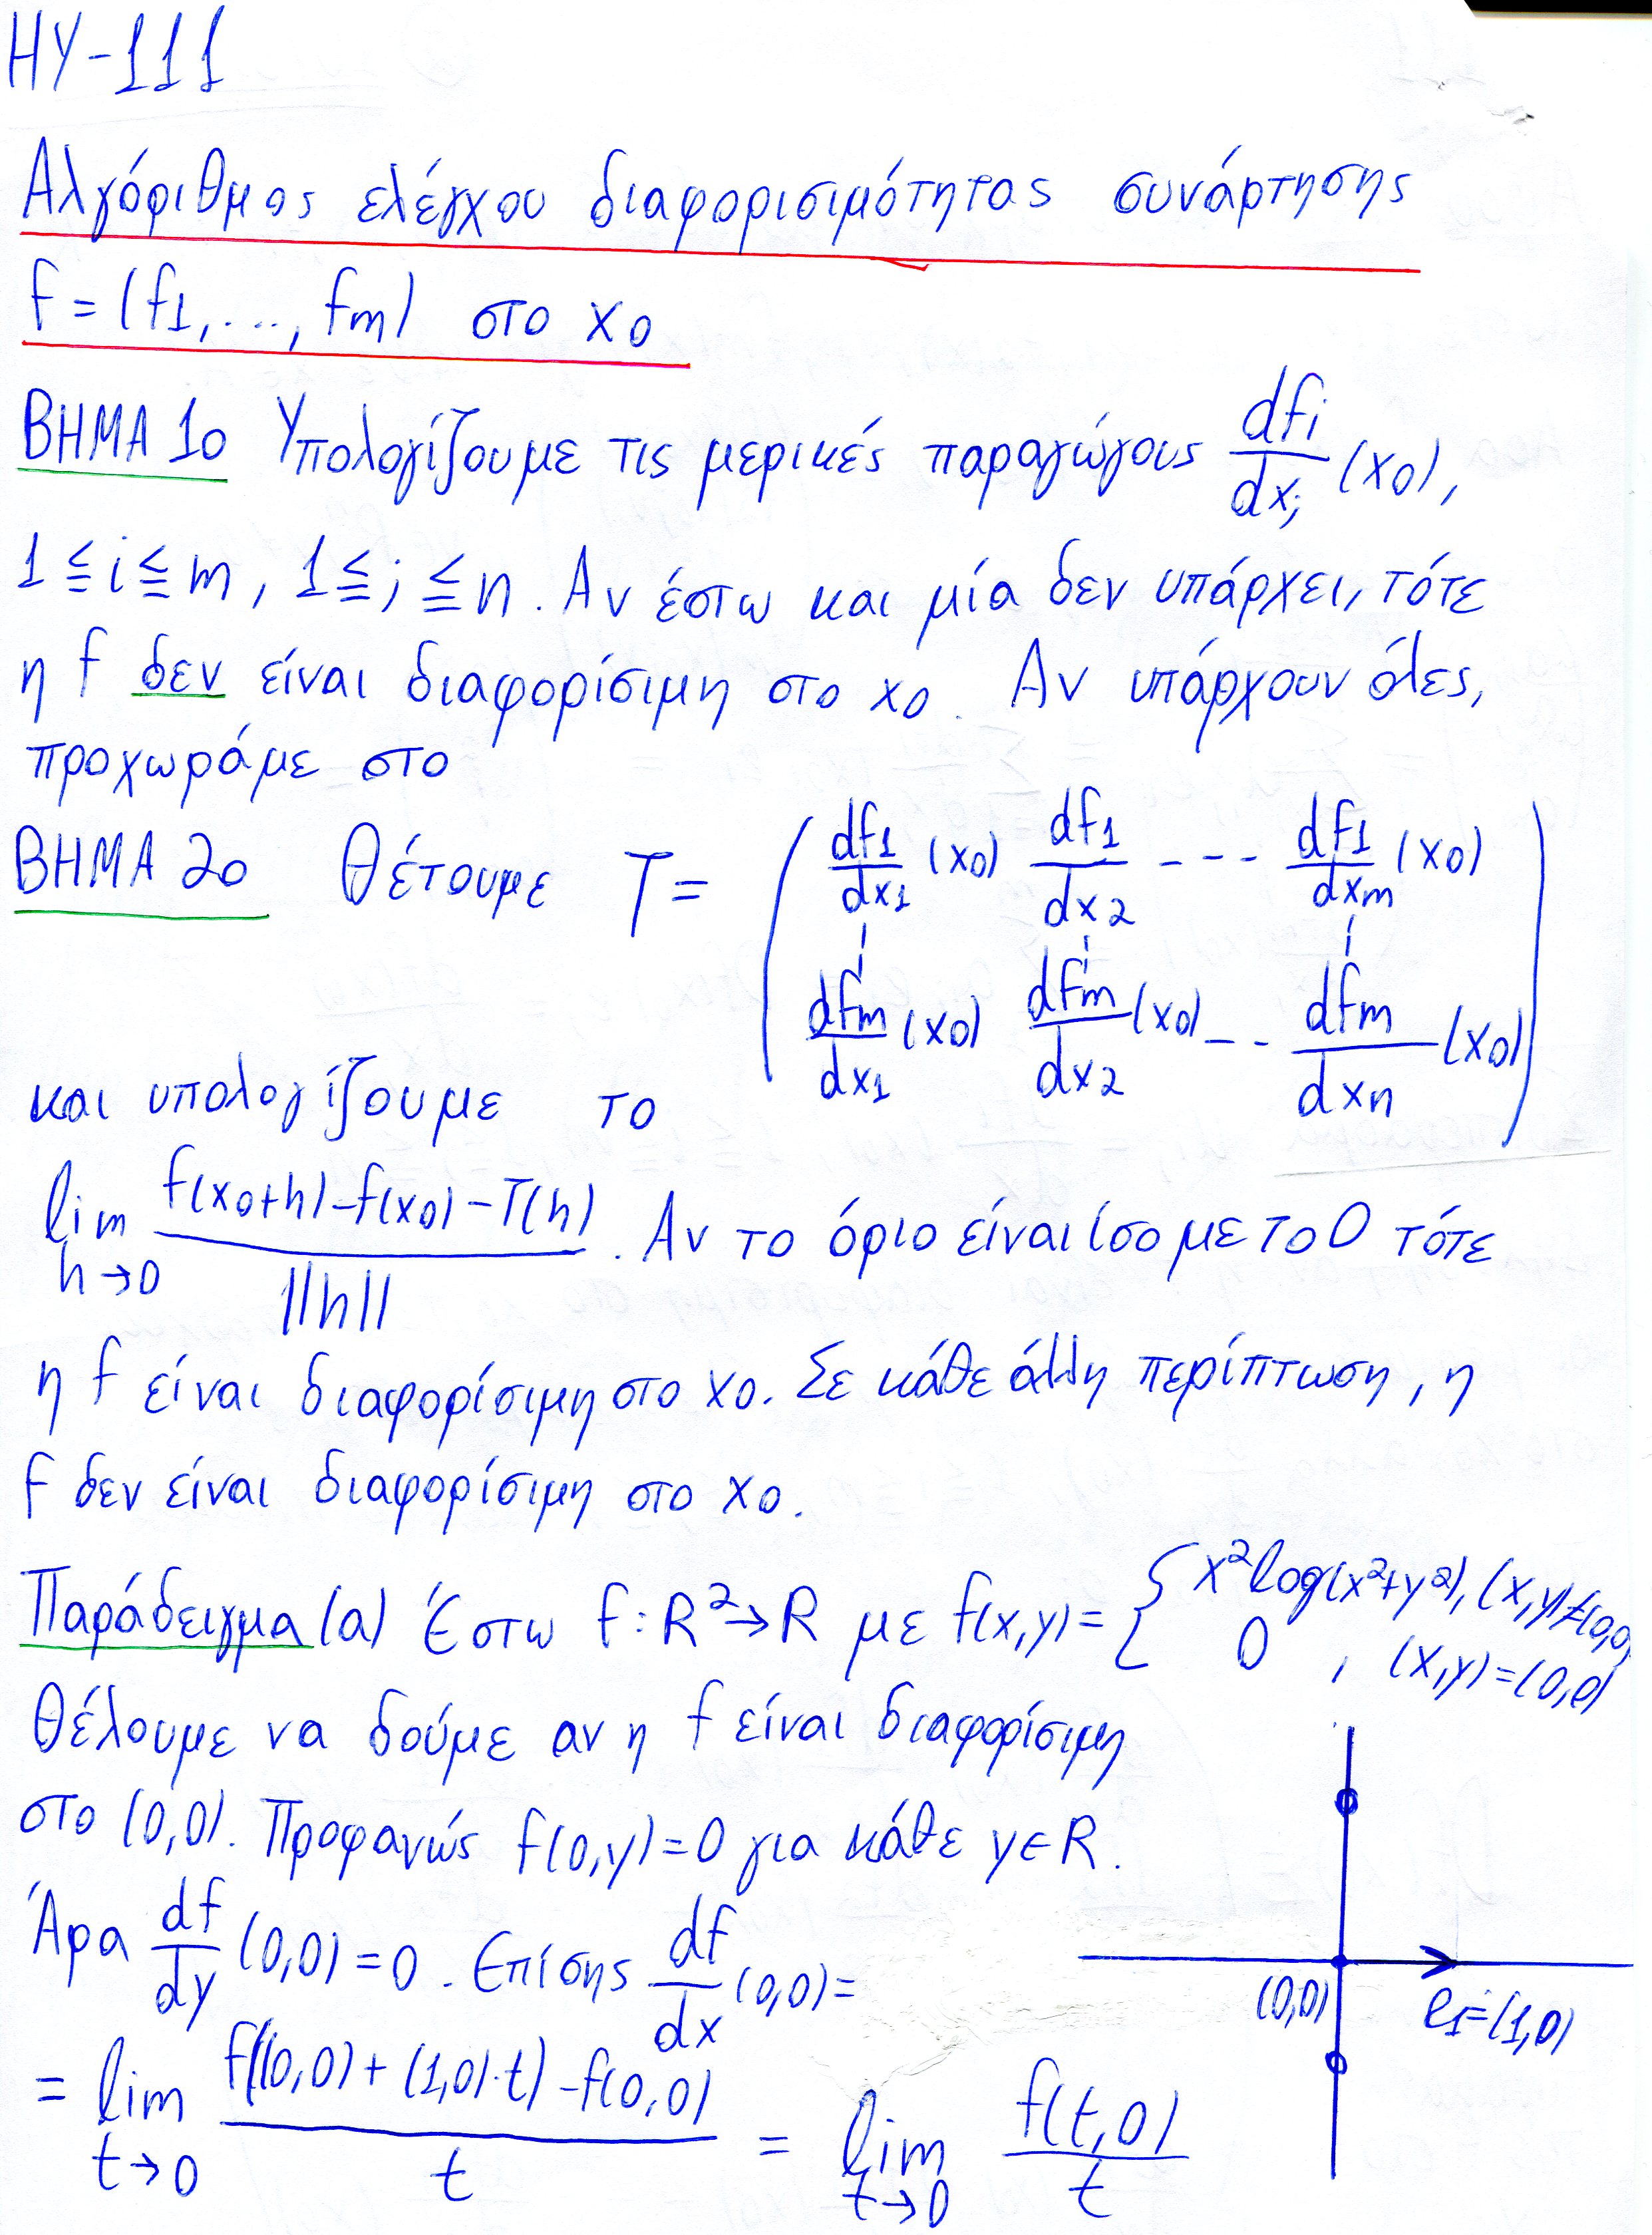 ΗΥ-111
Αλγόριθμος ελέγχου διαφορισιμότητας συνάρτησης
f=(f1,...,fm) στο x0
ΒΗΜΑ 1ο Υπολογίζουμε τις μερικές παραγώγους dfi/dxj (x0),
1≦i≦m, 1≦j≦n. Αν έστω και μία δεν υπάρχει, τότε
η f δεν είναι διαφορίσιμη στο x0. Αν υπάρχουν όλες,
προχωράμε στο
ΒΗΜΑ 2ο Θέτουμε T= ( df1/dx1 (x0) df1/dx2 --- df1/dxm (x0)
dfm/dx1 (x0) dfm/dx2 (x0) -- dfm/dxn (x0) )
και υπολογίζουμε το
lim h→0 f(x0+h)-f(x0)-T(h) / ||h|| . Αν το όριο είναι ίσο με το 0 τότε
η f είναι διαφορίσιμη στο x0. Σε κάθε άλλη περίπτωση, η
f δεν είναι διαφορίσιμη στο x0.
Παράδειγμα (α) Έστω f:R²→R με f(x,y)= { x²log(x²+y²), (x,y)≠(0,0
0 , (x,y)=(0,0)
Θέλουμε να δούμε αν η f είναι διαφορίσιμη
στο (0,0). Προφανώς f(0,y)=0 για κάθε y∈R.
Άρα df/dy (0,0)=0. Επίσης df/dx (0,0)=
= lim t→0 f((0,0)+(1,0)·t)-f(0,0) / t = lim t→0 f(t,0) / t
(0,0) e1=(1,0)